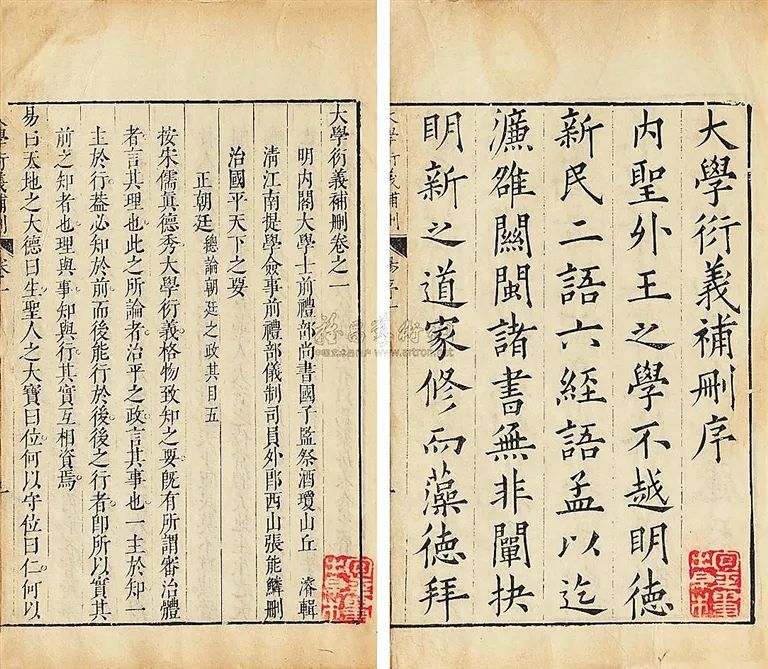 大學衍義補刪序
内聖外王之學不越明德
新民二語六經語孟以迄
濂雒關閩諸書無非闡抉
明新之道家修而藻德拜
大學衍義補刪卷之一
明内閣大學士前禮部尚書國子監祭酒瓊山丘 濬輯
清江南提學僉事前禮部儀制司員外郎西山張能鱗刪
治國平天下之要
正朝廷 總論朝廷之政其目五
按宋儒眞德秀大學衍義格物致知之要旣有所謂審治體
者言其理也此之所論者治平之政言其事也一主於知一
主於行葢必知於前而後能行於後後之行者卽所以實其
前之知者也理與事知與行其實互相資焉
易曰天地之大德曰生聖人之大寶曰位何以守位曰仁何以
大學衍義補刪
卷一
www.artron.net